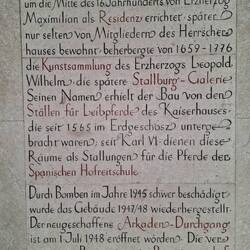 um die Mitte des 16.Jahrhunderts von Erzherzog
Maximilian als Residenz errichtet später
nur selten von Mitgliedern des Herrscher
hauses bewohnt beherbergte von 1659-1776
die Kunstsammlung des Erzherzogs Leopold
Wilhelm die spätere Stallburg-Galerie
Seinen Namen erhielt der Bau von den
Ställen für Leibpferde des Kaiserhauses
die seit 1565 im Erdgeschoss unterge
bracht waren, seit Karl VI. dienen diese
Räume als Stallungen für die Pferde der
Spanischen Hofreitschule.
Durch Bomben im Jahre 1945 schwer beschädigt
wurde das Gebäude 1947/48 wiederhergestellt.
Der neugeschaffene Arkaden-Durchgang
ist am 1 Juli 1948 eröffnet worden. Die